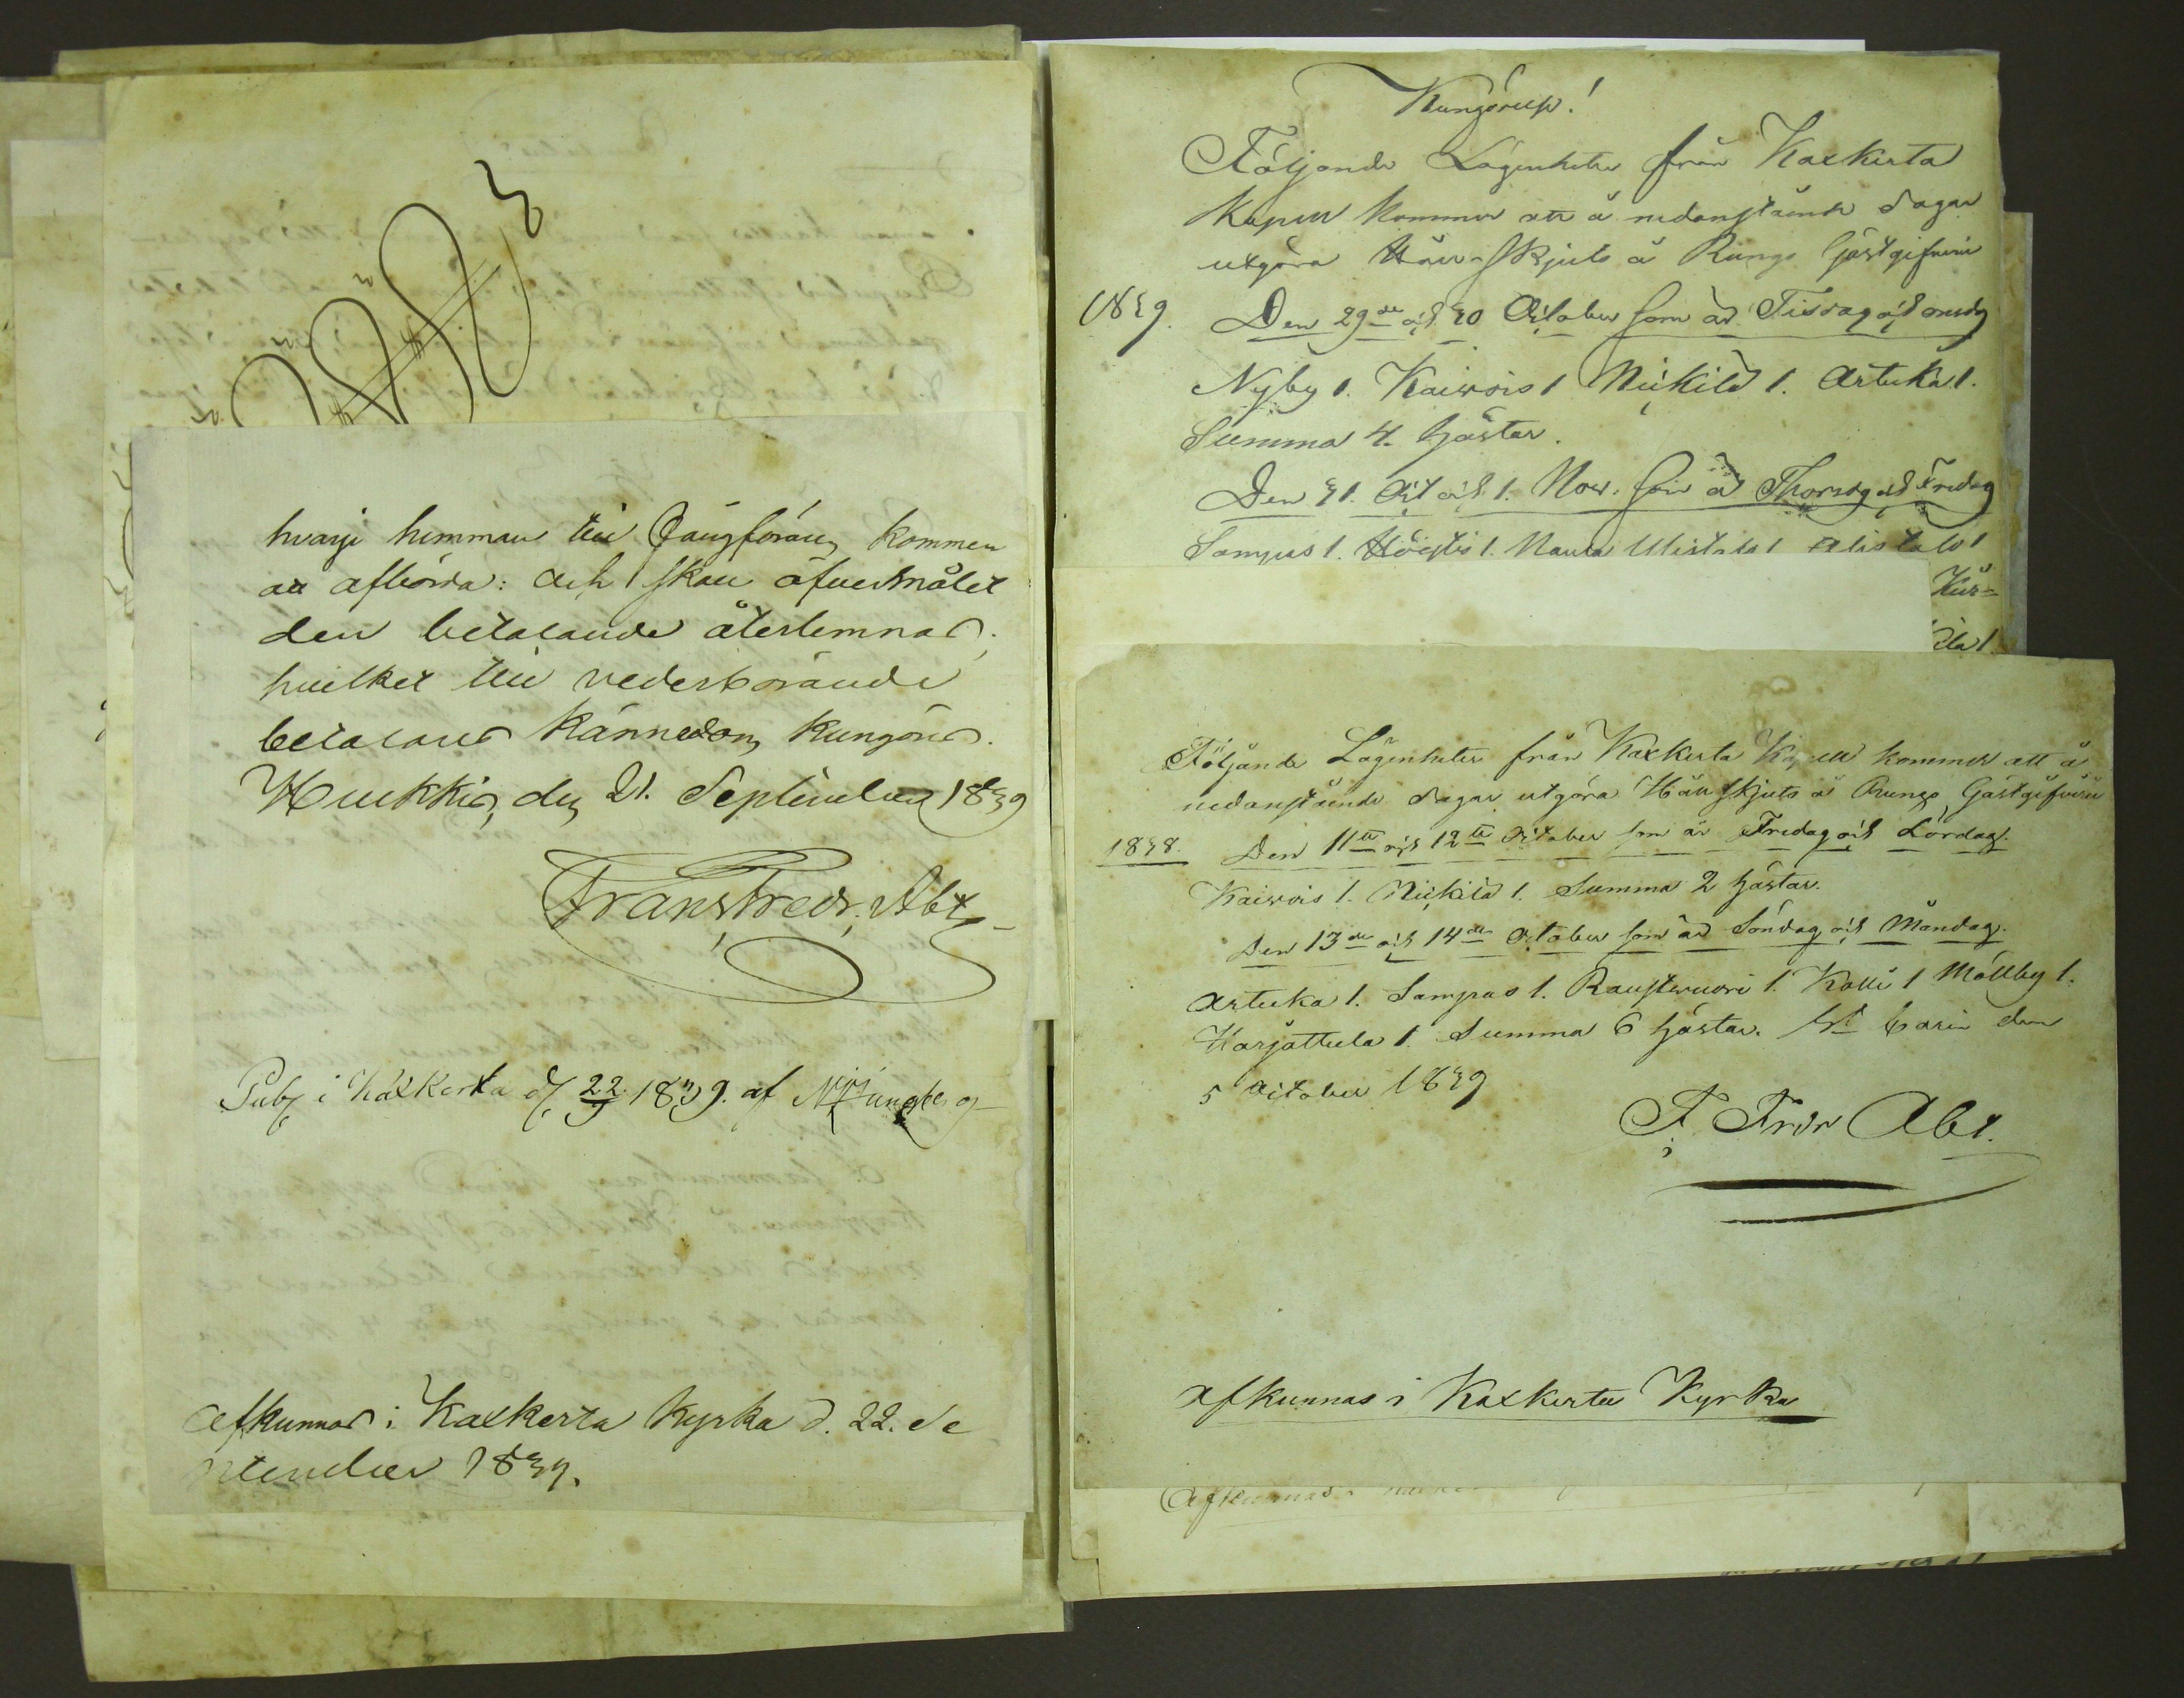 hvarje hemman till Fångföring kommer
att afbörda: Och skall öfverskottet
den betalande återlemnas;
hvilket till vederbörande
betalares kännedom kungöres.
Huckkis den 21. September 1839
Frans Fredr. Abt
Publ i Kaxkerta d 22/9 1839. af Ljungberg
Afkunnas i Kaxkerta Kyrka d. 22. Se
ptember 1839.
Kungörelse!
Följande Lägenheter från Kaxkerta
Kapell kommer att å nedanstående dagar
utgöra Håll-skjuts å Runga Gästgifveri
1839. Den 29de och 30 October som är Tisdag och onsdag
Nyby 1. Kaiwois 1 Nickilä 1. Artuka 1.
Summa 4. hästar.
Den 31. Oct och 1. Nov. som är Thorsdag och Fredag
Sampas 1. 1. Naula Ulistalo 1 Alistalo 1
Följande Lägenheter från Kaxkerta Kapell kommer att å
nedanstående dagar utgöra Håll skjuts å Runga Gästgifveri
1838. Den 11te och 12te October som är Fredag och Lördag.
Kaiwois 1. Nickilä 1. Summa 2 hästar.
Den 13de och 14de October som är Söndag och Måndag.
Artuka 1. Sampas 1. Raustwuori 1. Kolli 1 Möllby 1.
Harjattula 1. Summa 6 hästar. St Carin den
5 October 1839
F. Fredr Abt.
Afkunnas i Kaxkerta Kyrka
Afkunnas